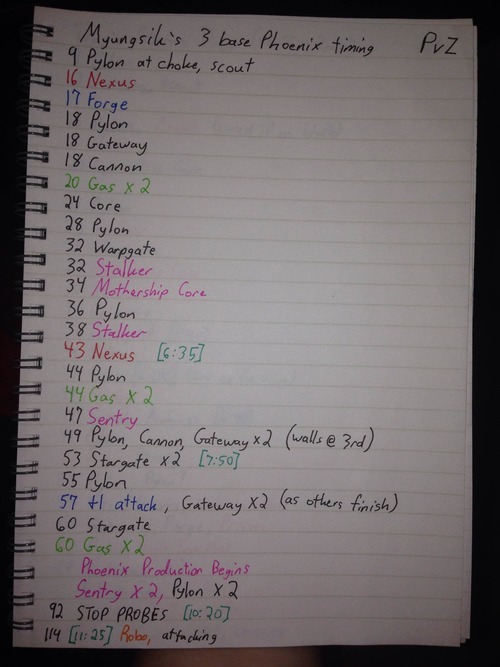 Myungsik's 3 base Phoenix timing PvZ
9 Pylon at choke, scout
16 Nexus
17 Forge
18 Pylon
18 Gateway
18 Cannon
20 Gas x 2
24 Core
28 Pylon
32 Warpgate
32 Stalker
34 Mothership Core
36 Pylon
38 Stalker
43 Nexus [6:35]
44 Pylon
44 Gas x 2
47 Sentry
49 Pylon, Cannon, Gateway x2 (walls @ 3rd)
53 Stargate x2 [7:50]
55 Pylon
57 +1 attack, Gateway x2 (as others finish)
60 Stargate
60 Gas x 2
Phoenix Production Begins
Sentry x 2, Pylon x 2
92 STOP PROBES [10:20]
114 [11:25] Robo, attacking